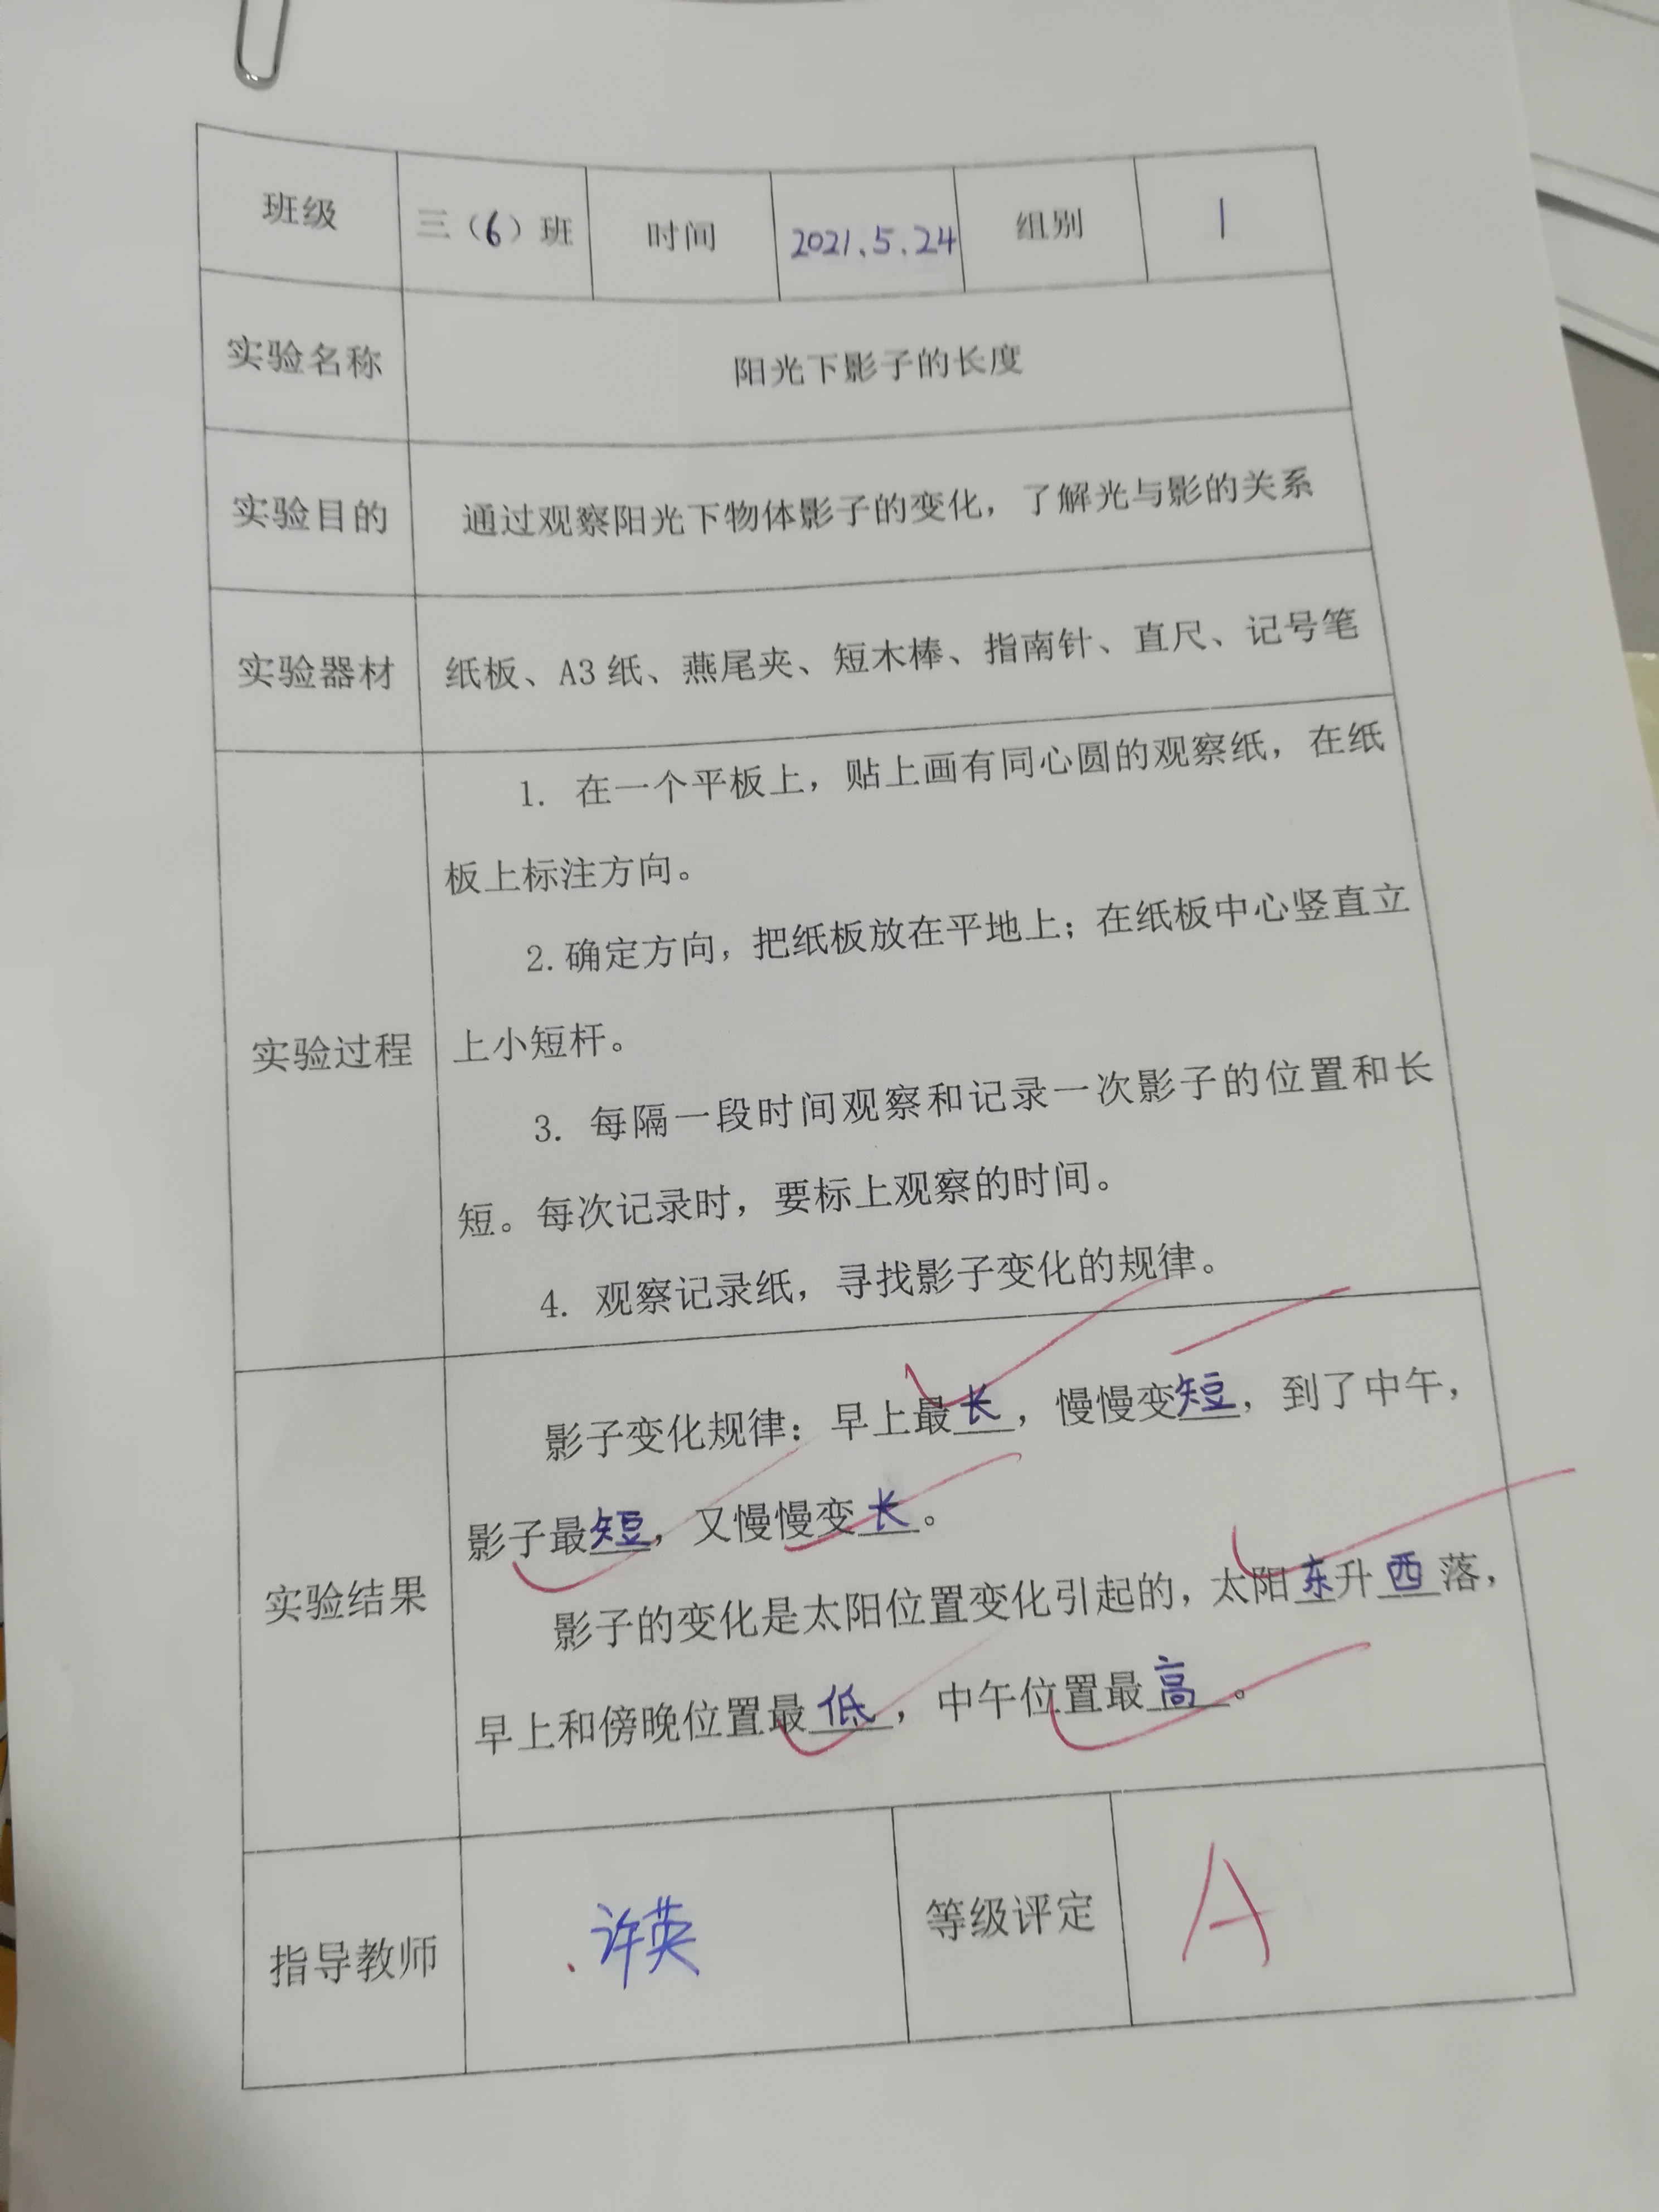 班级 三（6）班 时间 2021.5.24 组别 1
实验名称 阳光下影子的长度
实验目的 通过观察阳光下物体影子的变化，了解光与影的关系
实验器材 纸板、A3纸、燕尾夹、短木棒、指南针、直尺、记号笔
实验过程
1. 在一个平板上，贴上画有同心圆的观察纸，在纸
板上标注方向。
2.确定方向，把纸板放在平地上；在纸板中心竖直立
上小短杆。
3. 每隔一段时间观察和记录一次影子的位置和长
短。每次记录时，要标上观察的时间。
4. 观察记录纸，寻找影子变化的规律。
实验结果
影子变化规律：早上最长，慢慢变短，到了中午，
影子最短，又慢慢变长。
影子的变化是太阳位置变化引起的，太阳东升西落，
早上和傍晚位置最低，中午位置最高。
指导教师 许英 等级评定 A